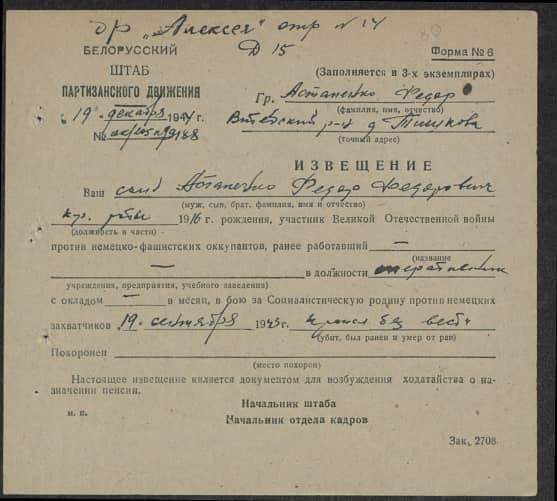 бр „Алексея" отр N 14
Д 15
БЕЛОРУССКИЙ
ШТАБ
ПАРТИЗАНСКОГО ДВИЖЕНИЯ
„19" декабря 1944 г.
№
Форма № 6
(Заполняется в 3-х экземплярах)
Гр. Астапенко Федор
(фамилия, имя, отчество)
Витебский р-н д
(точный адрес)
ИЗВЕЩЕНИЕ
Ваш Астапенко Федор Федорович
(муж, сын, брат, фамилия, имя и отчество)
1916 г. рождения, участник Великой Отечественной войны
(должность в части)
против немецко-фашистских оккупантов, ранее работавший —
(название
— в должности
учреждения, предприятия, учебного заведения)
с окладом — в месяц, в бою за Социалистическую родину против немецких
захватчиков 19 сентября 1943 г. пропал без вести
(убит, был ранен и умер от ран)
Похоронен
(место похорон)
Настоящее извещение является документом для возбуждения ходатайства о на-
значении пенсии.
Начальник штаба
м. п.
Начальник отдела кадров
Зак. 2708